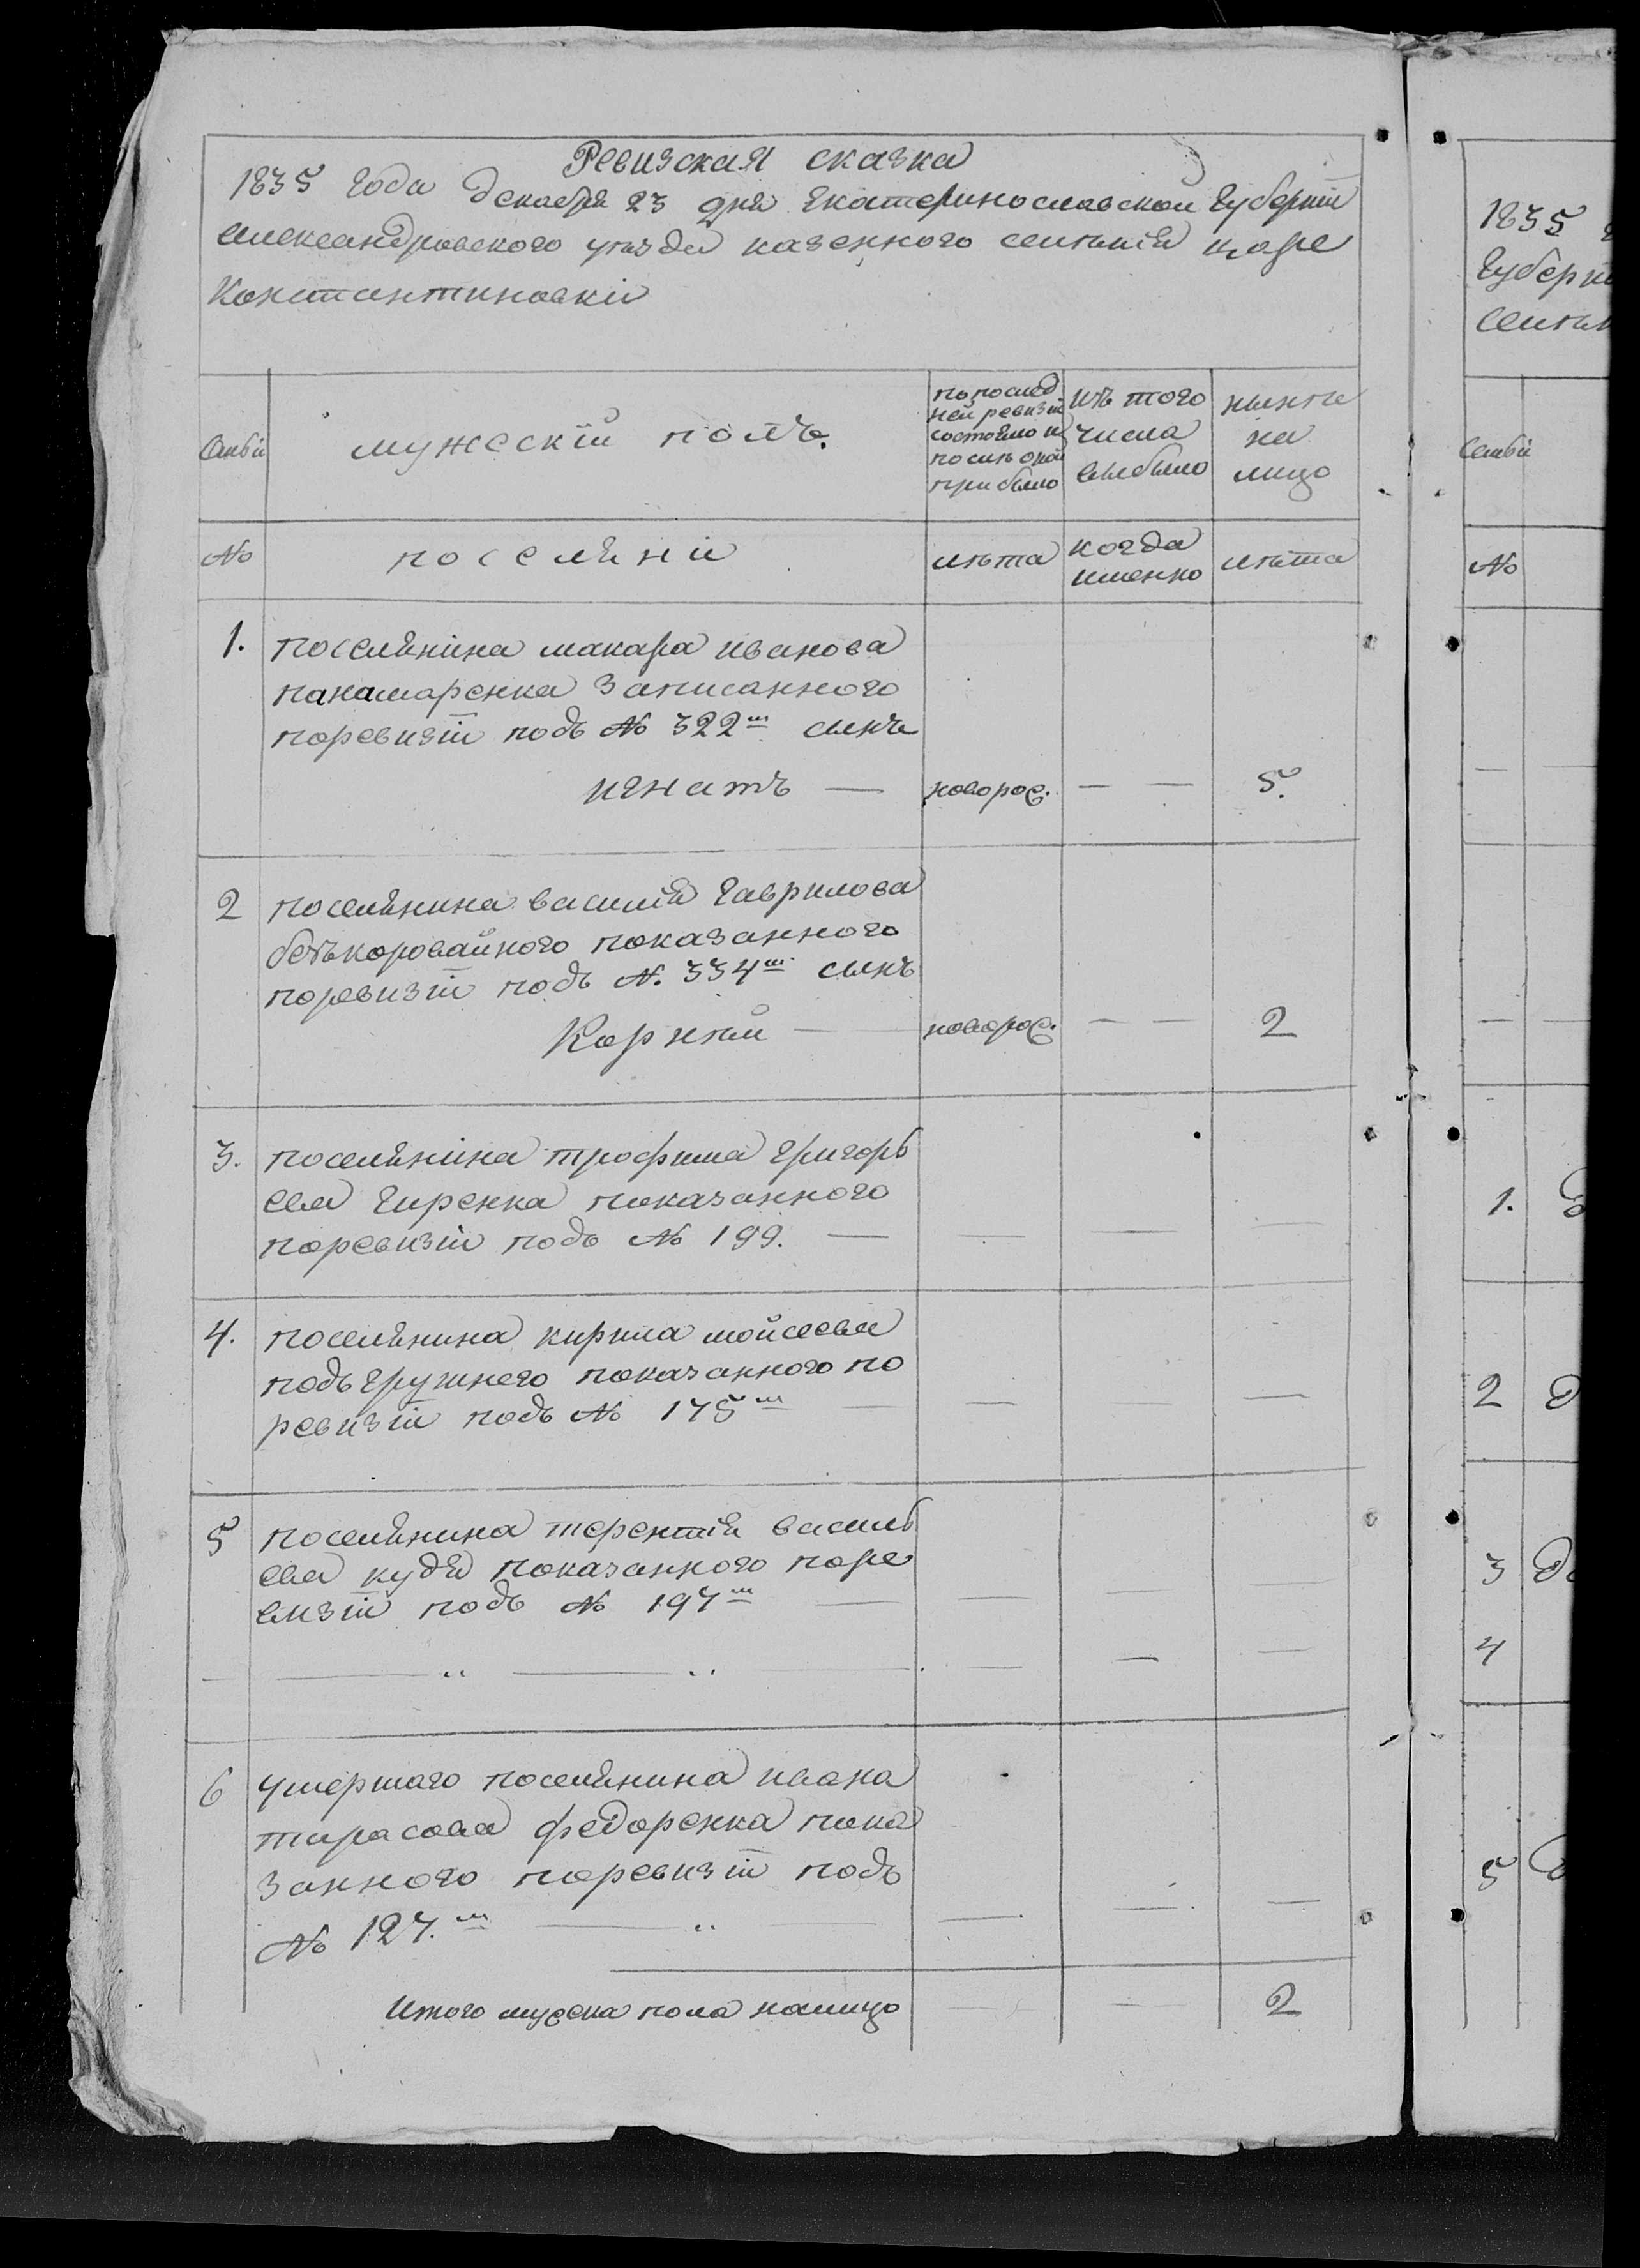 Ревизская сказка
1835 года декабря 23 дня Екатеринославской губернiи
Александровского уѣзда казенного селенiя царе
Константиновки
Семьи
мужескiй полъ.
по послѣд
ней ревизiи
состояло и
послѣ оной
прибыло
изъ того
числа
выбыло
нынѣ
на
лицо
№
поселяни
лѣта
когда
именно
лѣта
1. поселянина макара иванова
панамаренка записанного
поревизiи подъ № 322м сынъ
игнатъ — новорож. — — 5.
2 поселянина василiя гаврилова
безъкоровайного показанного
поревизiи подъ №. 334м сынъ
Корнѣй — новорож. — — 2
3. поселянина трофима григорь
ева гиренка показанного
поревизiи подъ № 199. —
4. поселянина кирила мойсеева
подъгрушнего показанного по
ревизiи подъ № 175м —
5 поселянина терентiя василь
ева кудя показанного поре
визiи подъ № 197м —
6 умершаго поселянина ивана
тарасова федоренка пока
занного поревизiи подъ
№ 127.м
Итого мужска пола налицо — — 2
1835
Губерн
Селен
Семьи
№
1.
2
3
4
5